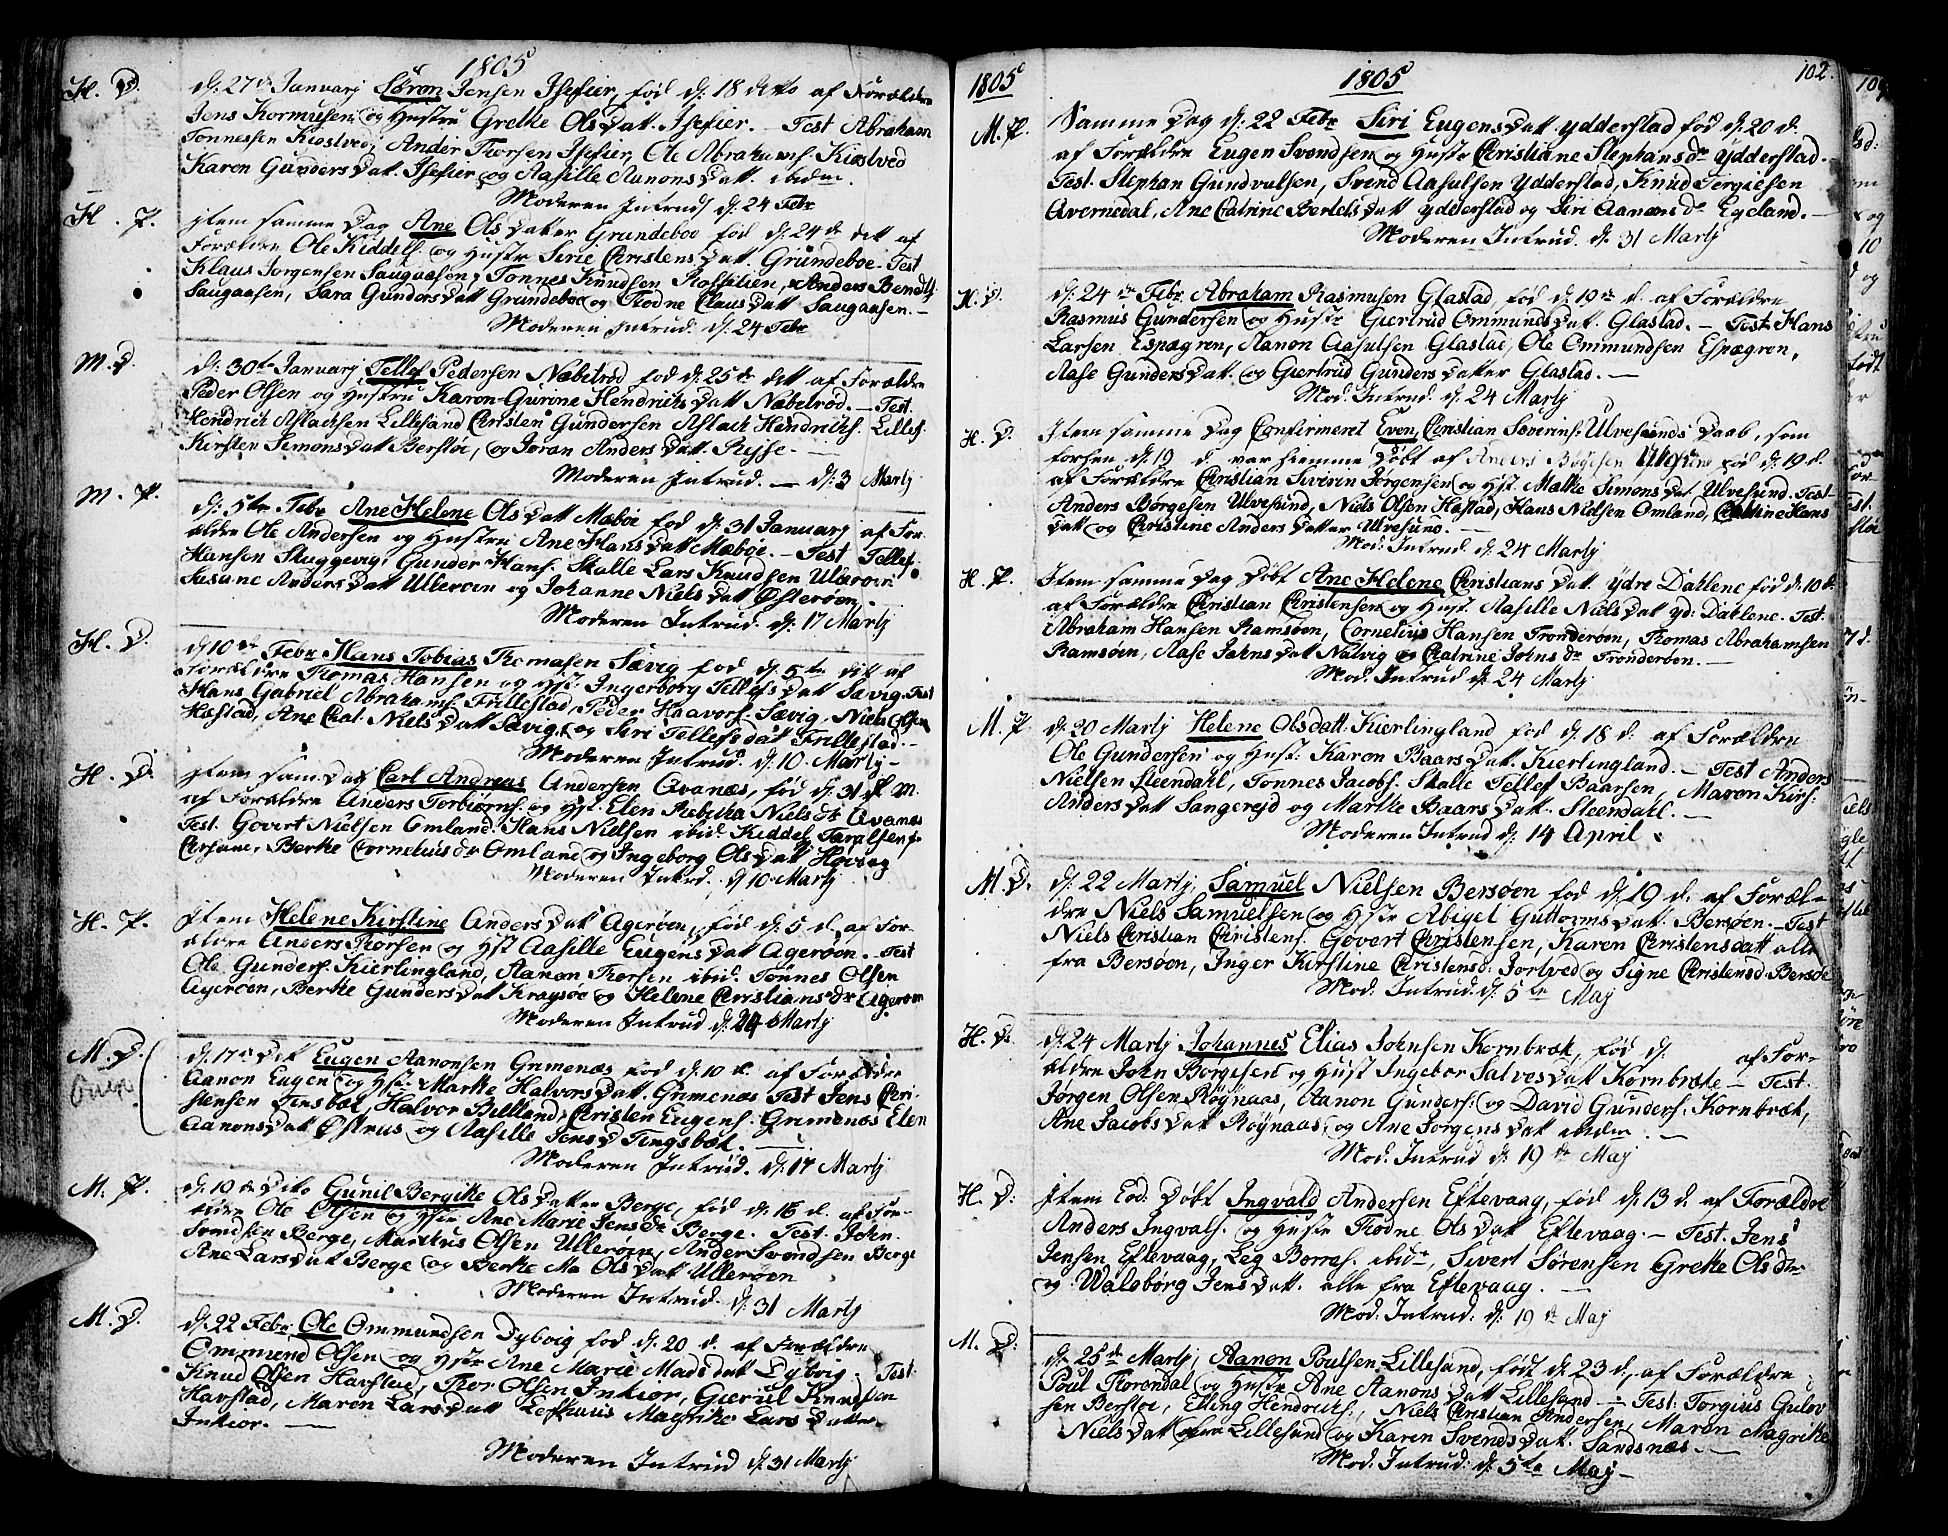 1805
H. D. d: 27de Januarj Søren Jensen Isefier, fød d: 18 dito af Forældre
Jens Kormusen og Hustru Grethe Olsdatt. Isefier. – Test Abraham
Tonnessen Kiostved, Ander Thorsen Isefier, Ole Abrahams. Kiostved
Karen Gundersdatt. Isefier og Aasille Aanonsdatt. ibidm.
Moderen Introd d: 24 Febr
H. P. Item samme Dag Ane Olsdatter Grundeboe fød d: 24 d. dett af
Forældre Ole Kiddels. og Hustr Sirie Christensdatt. Grundeboe. Test
Klaus Jorgensen Saugaasen, Tonnes Knudsen Rossilien, Anders Bendts
Saugaasen, Sara Gundersdatt Grundeboe og Thodne Clausdatt Saugaasen. –
Moderen Introd. d: 24 Febr
M. D. d: 30te Januarj Tellef Pedersen Næbelrød fød d: 25de dett af Forældre
Peder Olsen og Hustru Karen Gurine Hendrichsdatt Næbelrød. – Test.
Hendrich Aslachsen Lillesand Christen Gundersen Aslach Hendrichs. Lilles.
Kirsten Simonsdatt Berstøe, og Joran Andersdatt. Risse. –
Moderen Introd. – d: 3 Martj
M. P. d: 5te Febr Ane Helene Olsdatt Mæbøe fød d: 31 Januarj af For-
ældre Ole Andersen og Hustru Ane Hansdatt Mæbøe. – Test Tellef
Hansen Skuggevig, Gunder Hans. Skalle Lars Knudsen Ulærøen
Susane Andersdatt Ullerøen og Johanne Nielsdatt Østerøen.
Moderen Introd. d: 17 Martj
H. D. d: 10de Febr Hans Tobias Thomasen Sævig fød d: 5te dit af
Forældre Thomas Hansen og Hst: Ingerborg Tellefsdatt Sævig. Test
Hans Gabriel Abrahams. Frillestad, Peder Haavors. Sævig. Niels Olsen
Hæstad, Ane Chat. Nielsdatt Sævig, og Siri Tellefsdatt Frillestad. –
Moderen Introd. d: 10 Martj –
H. D. Item sam. Dag Carl Andreas Andersen Avanæs, fød d: 31 d. M.
af Forældre Anders Torbiørns. og Hst. Elen Rebekka Nielsdr Avanæs
Test. Govert Nielsen Omland. Hans Nielsen ibid. Kiddel Taralsen
Berthe Cornelius dr Omland og Ingeborg Olsdatt Høvaag
Moderen Introd. d: 10 Martj
H. P. Item Helene Kirstine Andersdatt Agerøen, fød d: 5 d. af For-
ældre Anders Thorsen og Hst Aasille Eugensdatt Agerøen. Test
Ole Gunders. Kierlingland, Aanon Thorsen ibid. Tønnes Olsen
Agerøen, Berthe Gundersdatt Kragsøe og Helene Christiansdr Agerøen
Moderen Introd d: 24 Martj
M. D. d: 17de dit Eugen Aanonsen Grimenæs fød d: 10 d. af Forældre
Aanon Eugen og Hst. Marthe Halvorsdatt. Grimenæs Test Jens Chri-
stensen Tinsbæk, Halvor Billand, Christen Eugens. Grimenæs Elen
Aanonsdatt Østrus og Aasille Jensd Tingsbæk.
Moderen Introd. d: 17 Martj
M. P. d: 19de Dito Gunil Bergithe Olsdatter Berge, fød d: 16 d. af For-
ældre Ole Olsen og Hstr Ane Marie Jensdr Berge. Test. John
Svendsen Berge, Markus Olsen Ullerøen, Ander Svendsen Berge
Ane Larsdatt Berge og Berthe Ma Olsdatt Ullerøen
Moderen Introd. d: 31 Martj
M. D. d: 22 Febr Ole Ommundsen Dybvig fød d: 20 d. af Forældre
Ommund Olsen og Hstr Ane Marie Madsdatt Dybvig. Test
Knud Olsen Havstad, Thor Olsen Inkior, Gierul Knudsen
Havstad, Maren Larsdatt Magrithe Lars datter
Inkior. –
Moderen Introd d: 31 Martj
1805
1805
102.
M. P. Samme Dag d: 22 Febr Siri Eugensdatt Ydderstad fød d: 20 d.
af Forældre Eugen Svendsen og Hustr Christiane Stephansdr Ydderstad.
Test. Stephan Gundvulsen, Svend Aasulsen Ydderstad, Knud Tergiesen
Avernedal, Ane Chatrine Bertelsdatt Ydderstad og Siri Aanonsdr Egeland. –
Moderen Introd. d: 31 Martj
H. D. d: 24de Febr. Abraham Rasmusen Glastad, fød d: 19de d. af Forældre
Rasmus Gundersen og Hustr Giertrud Ommundsdatt. Glastad. – Test: Hans
Larsen Espægren, Aanon Aasulsen Glastad, Ole Ommundsen Espægren,
Aase Gundersdatt. og Giertrud Gundersdatter Glastad. –
Mod. Introd. d: 24 Martj
H. D. Item samme Dag Confirmeret Even Christian Sæverins: Ulvesunds Daab, som
forhen d: 19 d var hiemme Døbt af Anders Børgesen fød d: 19 d.
af Forældre Christian Siverin Jørgensen og Hst. Malle Simonsdat Ulvesund. Test
Anders Børgesen Ulvesund, Niels Olsen Hæstad, Hans Nielsen Omland, Hans
datt og Christine Andersdatter Ulvesund. –
Mod: Introd d: 24 Martj
H. P. Item samme Dag Døbt Ane Helene Christiansdatt. Ydre Dahlene fød d: 10 d.
af Forældre Christian Christensen og Hust. Aasille Nielsdatt yd: Dahlene. Test.
Abraham Hansen Ramsøen, Cornelius Hansen Tronderøen, Thomas Abrahamsen
Ramsøen, Aase Jahnsdatt Nalvig og Chatrine Johnsdr Tronderøen. –
Mod. Introd d: 24 Martj
M. P. d: 20 Martj Helene Olsdatt. Kierlingland fød d: 18 d: af Forældre
Ole Gundersen og Hust: Karen Baarsdatt. Kierlingland. – Test Anders
Nielsen Steendahl, Tonnes Jacobs. Skalle Tellef Baarsen, Maren Kirs:
Andersdatt Sangereid og Marthe Baarsdatt. Steendahl. –
Moderen Introd d: 14 April.
M. D. d: 22 Martj, Samuel Nielsen Bersøen fød d: 19 d. af Foræl-
dre Niels Samuelsen og Hstr Abigel Guttormsdatt. Bersøen. – Test
Niels Christian Christens. Govert Christensen, Karen Christensdatt alle
fra Bersøen, Inger Kirstine Christensd: Jortved og Signe Christensd Bersøe
Mod. Introd. d: 5te Maj
H. D: d: 24 Martj Johannes Elias Johnsen Kornbræk, fød d: af For-
ældre John Børgesen og Hust Ingebor Salvesdatt Kornbræke – Test.
Jørgen Olsen Røynaas, Aanon Gunders: og David Gunders: Kornbræk,
Ane Jacobsdatt Røynaas, og Ane Jorgensdatt ibidm. –
Mod. Introd d: 19de Maj
H. D: Item Eod: Døbt Ingvald Andersen Eftevaag, fød d: 13 d. af Forældre
Anders Ingvals. og Hustr Thodne Olsdatt Eftevaag. – Test. Jens
Jensen Eftevaag, Leg Borres. ibidm, Sivert Sørensen Grethe Olsdr
og Walsborg Jensdatt. alle fra Eftevaag. –
Mod: Introd: d: 19de Maj
M. D: d: 25de Martj, Aanon Poulsen Lillesand, født d: 23 d., af Forældre
Poul Thorendal og Hustr Ane Aanonsdatt Lillesand – Test: Torgius Gulov
sen Berstøe, Elling Hendrichs:, Niels Christian Andersen, Maren Magrithe
Nielsdatt fra Lillesand og Karen Svendsdatt. Sandsnæs. –
Mod: Introd: d: 5te Maj –